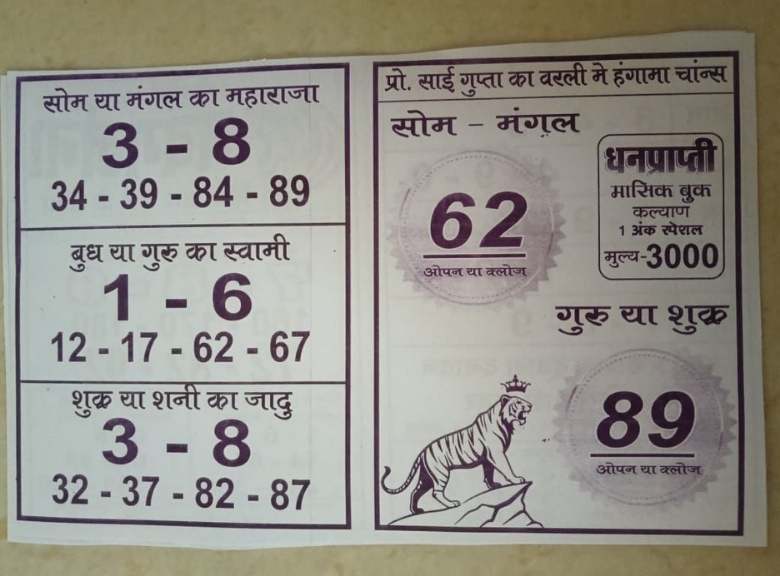 सोम या मंगल का महाराजा
3 - 8
34 - 39 - 84 - 89
बुध या गुरु का स्वामी
1 - 6
12 - 17 - 62 - 67
शुक्र या शनी का जादु
3 - 8
32 - 37 - 82 - 87
प्रो. साई गुप्ता का वरली मे हंगामा चांन्स
सोम - मंगल
62
ओपन या क्लोज
धनप्राप्ती
मासिक बुक
कल्याण
1 अंक स्पेशल
मुल्य-3000
गुरु या शुक्र
89
ओपन या क्लोज